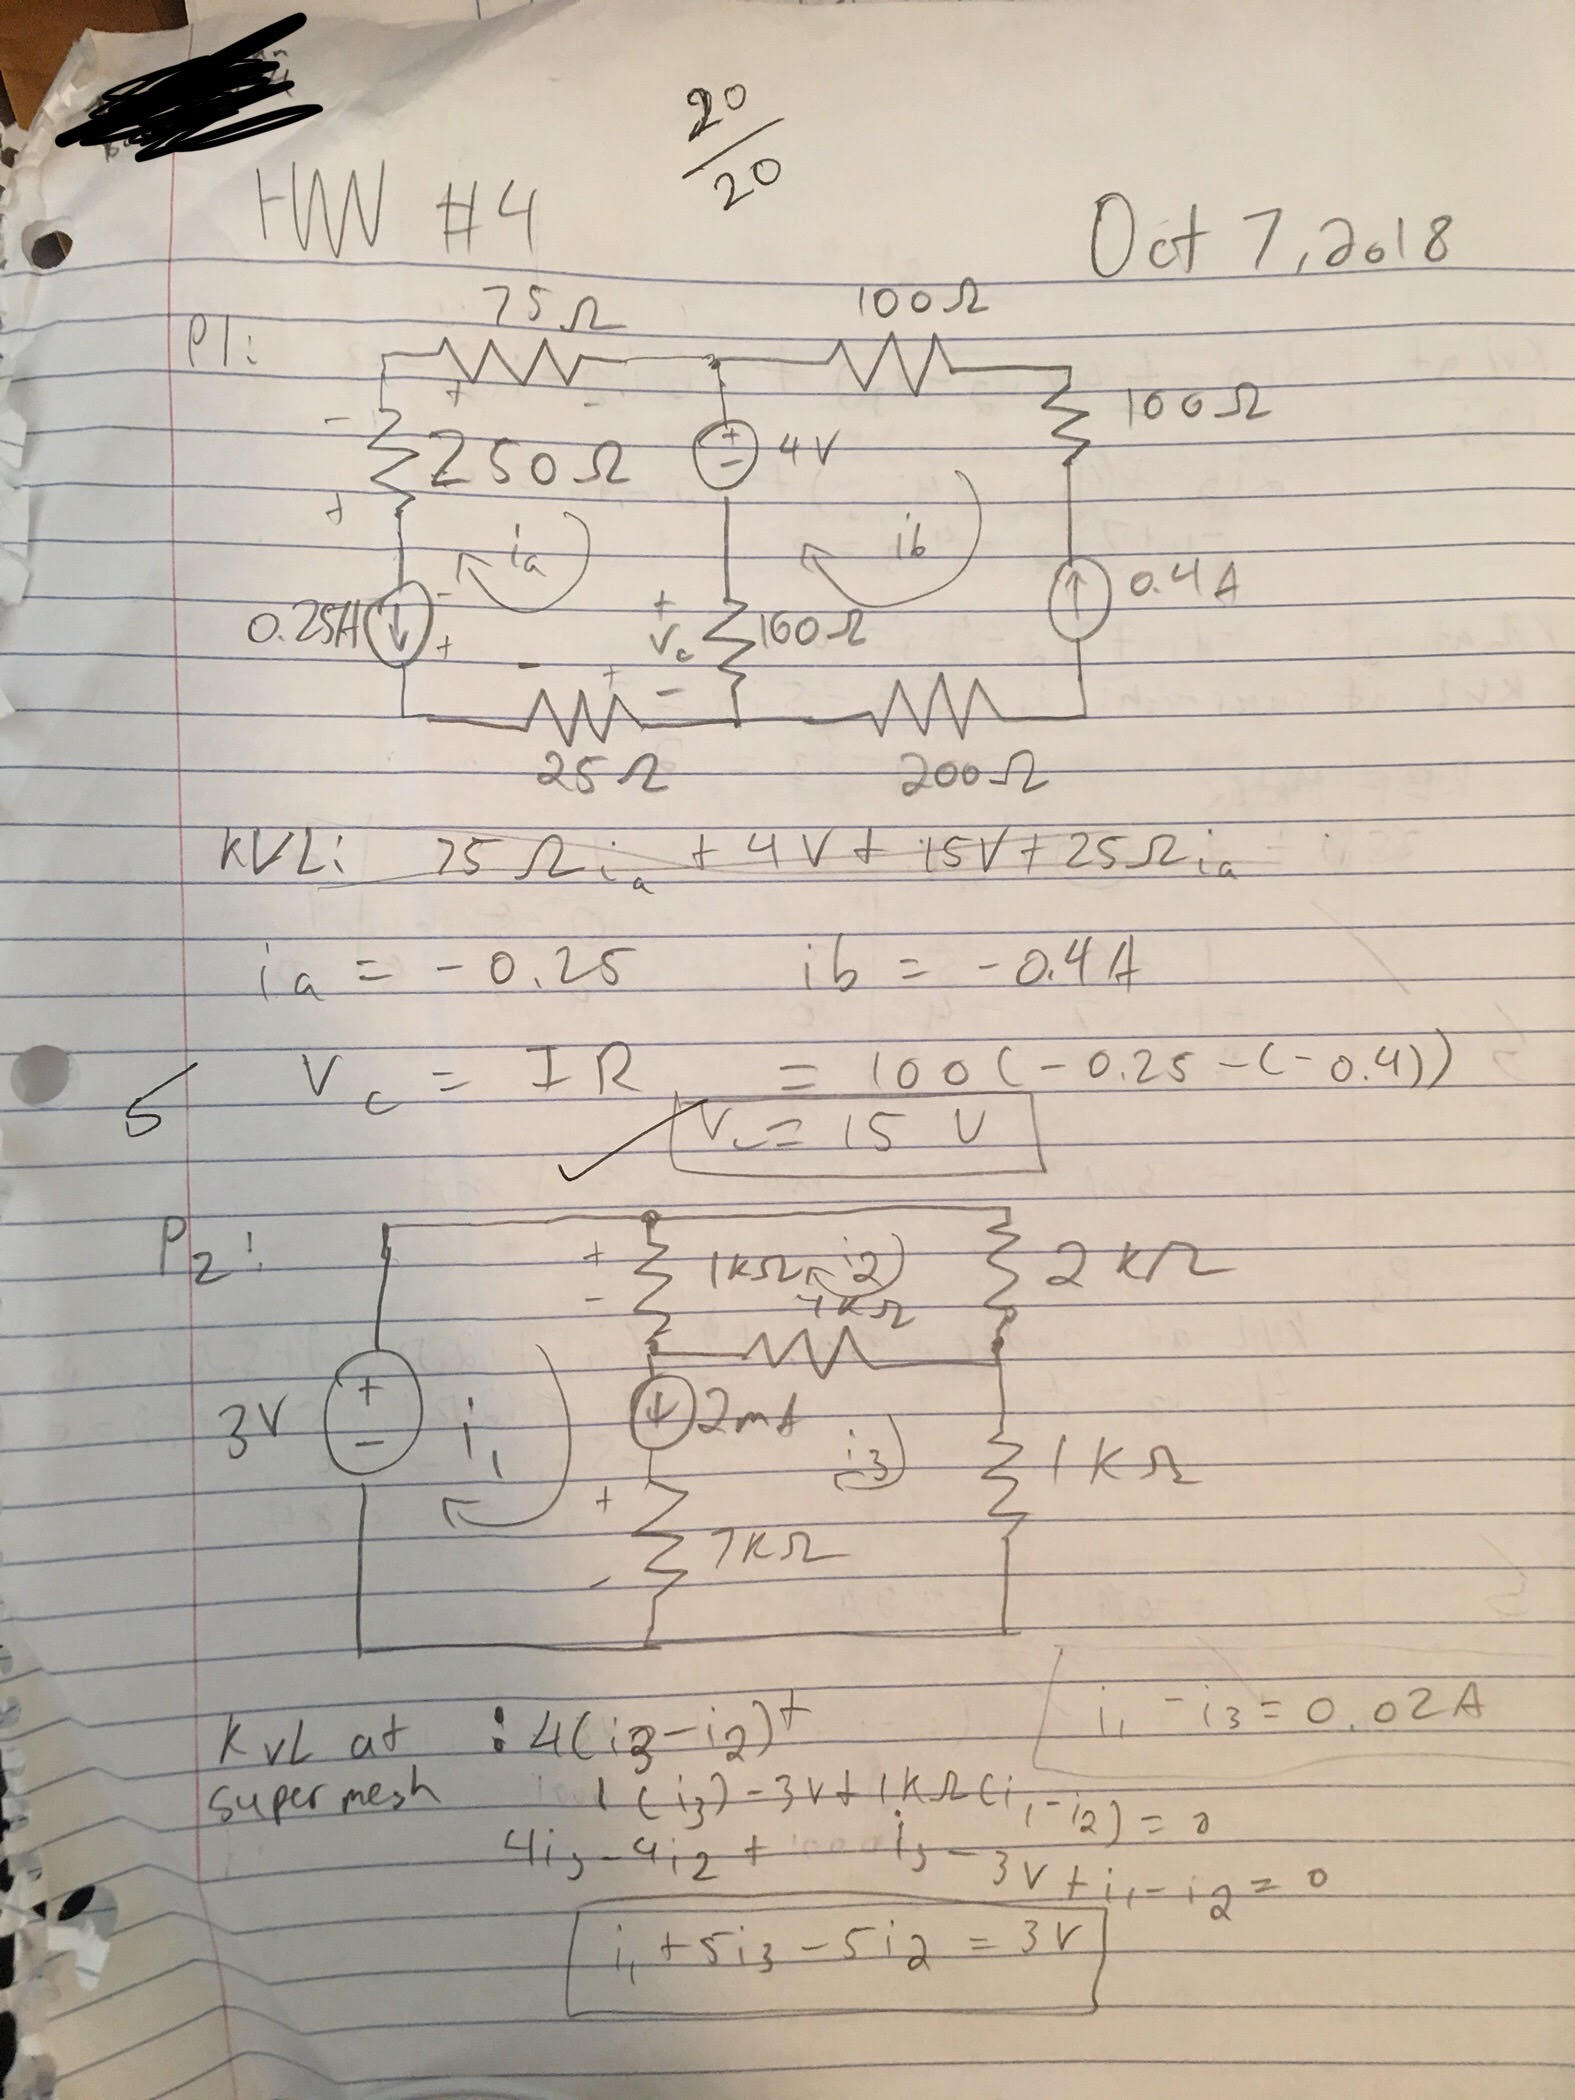 20
/
20
HW #4
Oct 7, 2018
P1:
75Ω
100Ω
+ -
100Ω
-
250Ω
+
-
4V
+
ia
ib
0.25A
-
+
0.4A
+
Vc
-
100Ω
- +
25Ω
200Ω
KVL: 75Ωia + 4V + 15V + 25Ωia
ia = -0.25
ib = -0.4A
5
Vc = IR = 100(-0.25-(-0.4))
Vc = 15 V
P2:
+
-
1KΩ
i2
2KΩ
4KΩ
3V
+
-
i1
2mA
i3
1KΩ
+
-
7KΩ
i1 - i3 = 0.02A
KVL at : 4(i3-i2)+
super mesh 1(i3)-3V+1KΩ(i1-i2)=0
4i3-4i2 + i3-3V+i1-i2=0
i1+5i3-5i2 = 3V